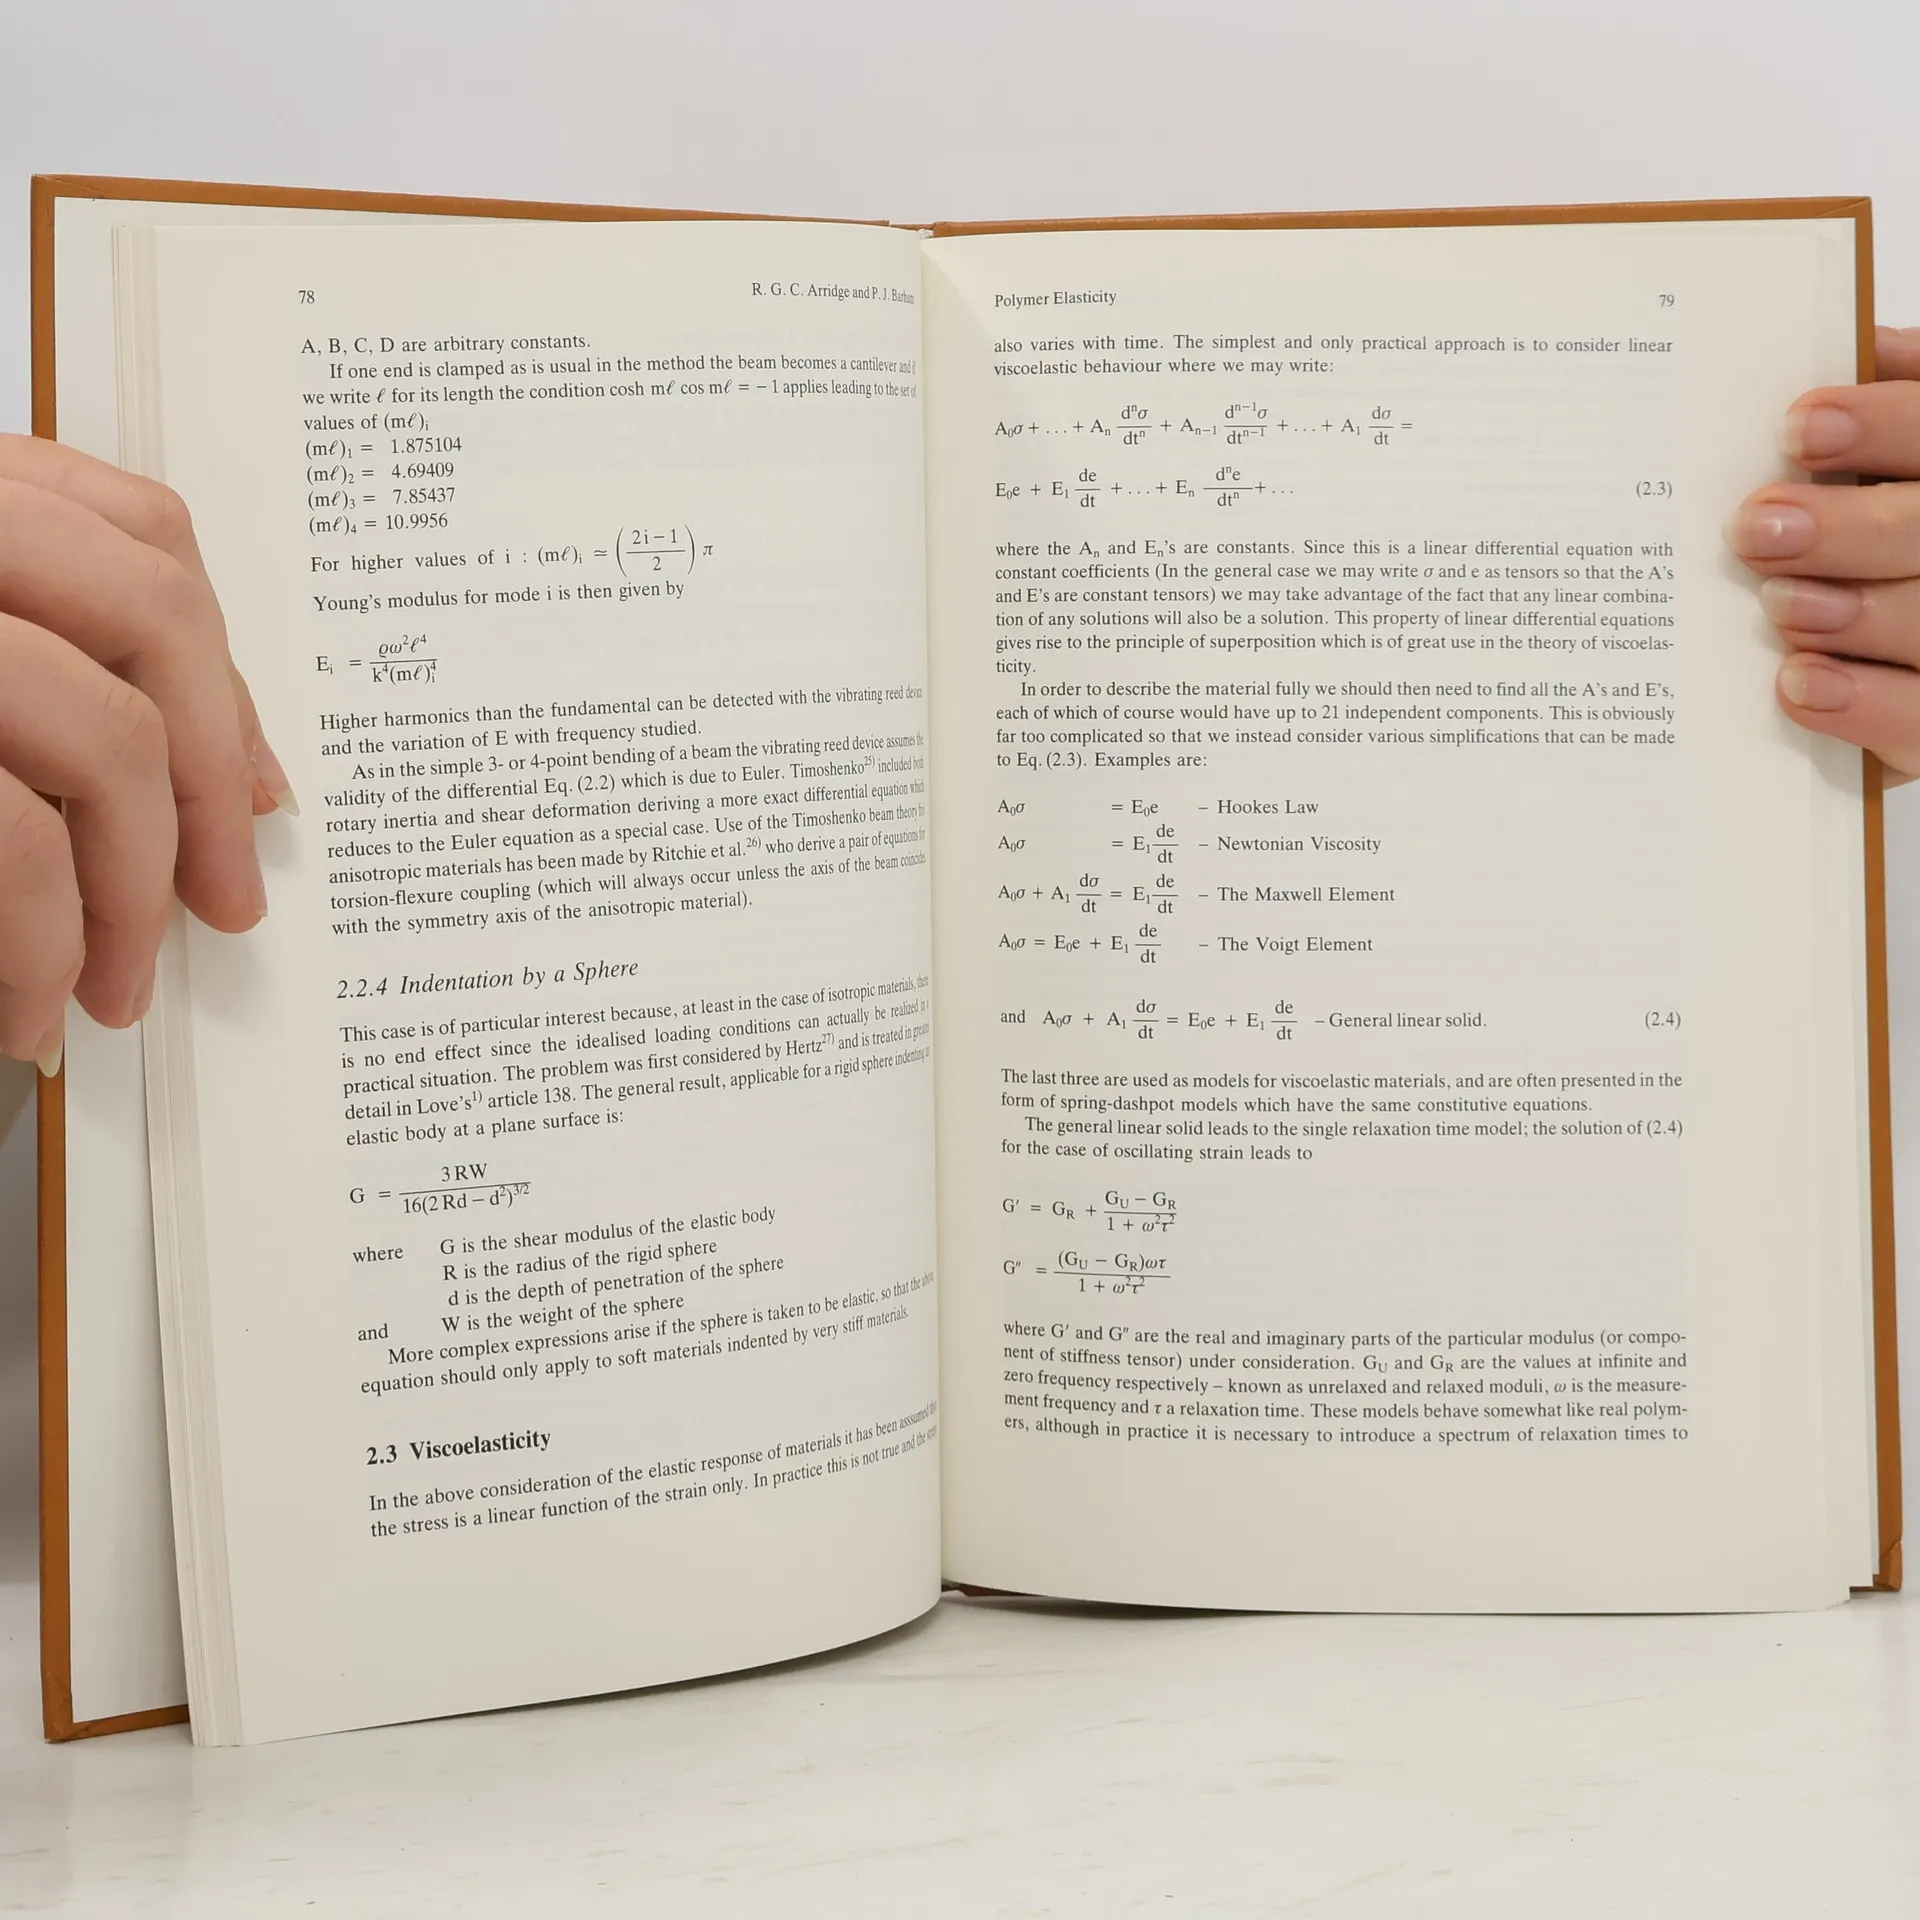 78 R. G. C. Arridge and P. J. Barham
A, B, C, D are arbitrary constants.
If one end is clamped as is usual in the method the beam becomes a cantilever and if
we write ℓ for its length the condition cosh mℓ cos mℓ = − 1 applies leading to the set of
values of (mℓ)i
(mℓ)1 = 1.875104
(mℓ)2 = 4.69409
(mℓ)3 = 7.85437
(mℓ)4 = 10.9956
For higher values of i : (mℓ)i ≃ ((2i − 1)/2) π
Young's modulus for mode i is then given by
Ei = ϱω²ℓ⁴ / k⁴(mℓ)i⁴
Higher harmonics than the fundamental can be detected with the vibrating reed device
and the variation of E with frequency studied.
As in the simple 3- or 4-point bending of a beam the vibrating reed device assumes the
validity of the differential Eq. (2.2) which is due to Euler. Timoshenko25) included both
rotary inertia and shear deformation deriving a more exact differential equation which
reduces to the Euler equation as a special case. Use of the Timoshenko beam theory for
anisotropic materials has been made by Ritchie et al.26) who derive a pair of equations for
torsion-flexure coupling (which will always occur unless the axis of the beam coincides
with the symmetry axis of the anisotropic material).
2.2.4 Indentation by a Sphere
This case is of particular interest because, at least in the case of isotropic materials, there
is no end effect since the idealised loading conditions can actually be realized in a
practical situation. The problem was first considered by Hertz27) and is treated in greater
detail in Love's1) article 138. The general result, applicable for a rigid sphere indenting an
elastic body at a plane surface is:
G = 3 RW / 16(2 Rd − d²)^3/2
where G is the shear modulus of the elastic body
R is the radius of the rigid sphere
d is the depth of penetration of the sphere
and W is the weight of the sphere
More complex expressions arise if the sphere is taken to be elastic, so that the above
equation should only apply to soft materials indented by very stiff materials.
2.3 Viscoelasticity
In the above consideration of the elastic response of materials it has been asssumed that
the stress is a linear function of the strain only. In practice this is not true and the
Polymer Elasticity 79
also varies with time. The simplest and only practical approach is to consider linear
viscoelastic behaviour where we may write:
A0σ + . . . + An dⁿσ/dtⁿ + An−1 dⁿ⁻¹σ/dtⁿ⁻¹ + . . . + A1 dσ/dt =
E0e + E1 de/dt + . . . + En dⁿe/dtⁿ + . . . (2.3)
where the An and En's are constants. Since this is a linear differential equation with
constant coefficients (In the general case we may write σ and e as tensors so that the A's
and E's are constant tensors) we may take advantage of the fact that any linear combina-
tion of any solutions will also be a solution. This property of linear differential equations
gives rise to the principle of superposition which is of great use in the theory of viscoelas-
ticity.
In order to describe the material fully we should then need to find all the A's and E's,
each of which of course would have up to 21 independent components. This is obviously
far too complicated so that we instead consider various simplifications that can be made
to Eq. (2.3). Examples are:
A0σ = E0e – Hookes Law
A0σ = E1 de/dt – Newtonian Viscosity
A0σ + A1 dσ/dt = E1 de/dt – The Maxwell Element
A0σ = E0e + E1 de/dt – The Voigt Element
and A0σ + A1 dσ/dt = E0e + E1 de/dt – General linear solid. (2.4)
The last three are used as models for viscoelastic materials, and are often presented in the
form of spring-dashpot models which have the same constitutive equations.
The general linear solid leads to the single relaxation time model; the solution of (2.4)
for the case of oscillating strain leads to
G′ = GR + (GU − GR) / (1 + ω²τ²)
G″ = (GU − GR)ωτ / (1 + ω²τ²)
where G′ and G″ are the real and imaginary parts of the particular modulus (or compo-
nent of stiffness tensor) under consideration. GU and GR are the values at infinite and
zero frequency respectively – known as unrelaxed and relaxed moduli, ω is the measure-
ment frequency and τ a relaxation time. These models behave somewhat like real polym-
ers, although in practice it is necessary to introduce a spectrum of relaxation times to